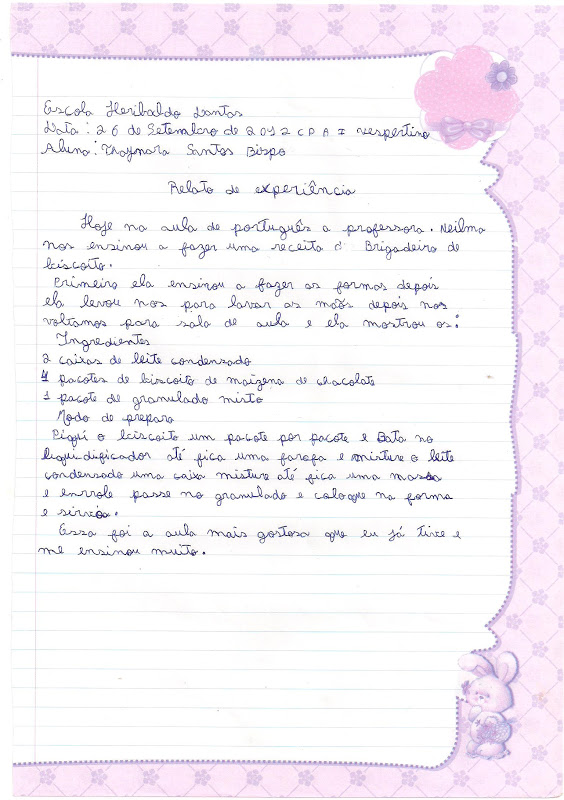 Escola Heribaldo Dantas
Data: 26 de Setembro de 2012 C P A I vespertino
Aluna: Thaymara Santos Bispo
Relato de experiência
Hoje na aula de português a professora. Neilma
nos ensinou a fazer uma receita d' Brigadeiro de
biscoito.
Primeiro ela ensinou a fazer as formas depois
ela levou nos para lavar as mãos depois nos
voltamos para sala de aula e ela mostrou os:
Ingredientes
2 caixas de leite condensado
4 pacotes de biscoito de maizena de chocolate
1 pacote de granulado misto
Modo de preparo
Piqui o biscoito um pacote por pacote e Bata no
liquidificador até fica uma farofa e misture o leite
condensado uma caixa misture até fica uma massa
e enrole passe no granulado e coloque na forma
e sirva.
Essa foi a aula mais gostosa que eu já tive e
me ensinou muito.